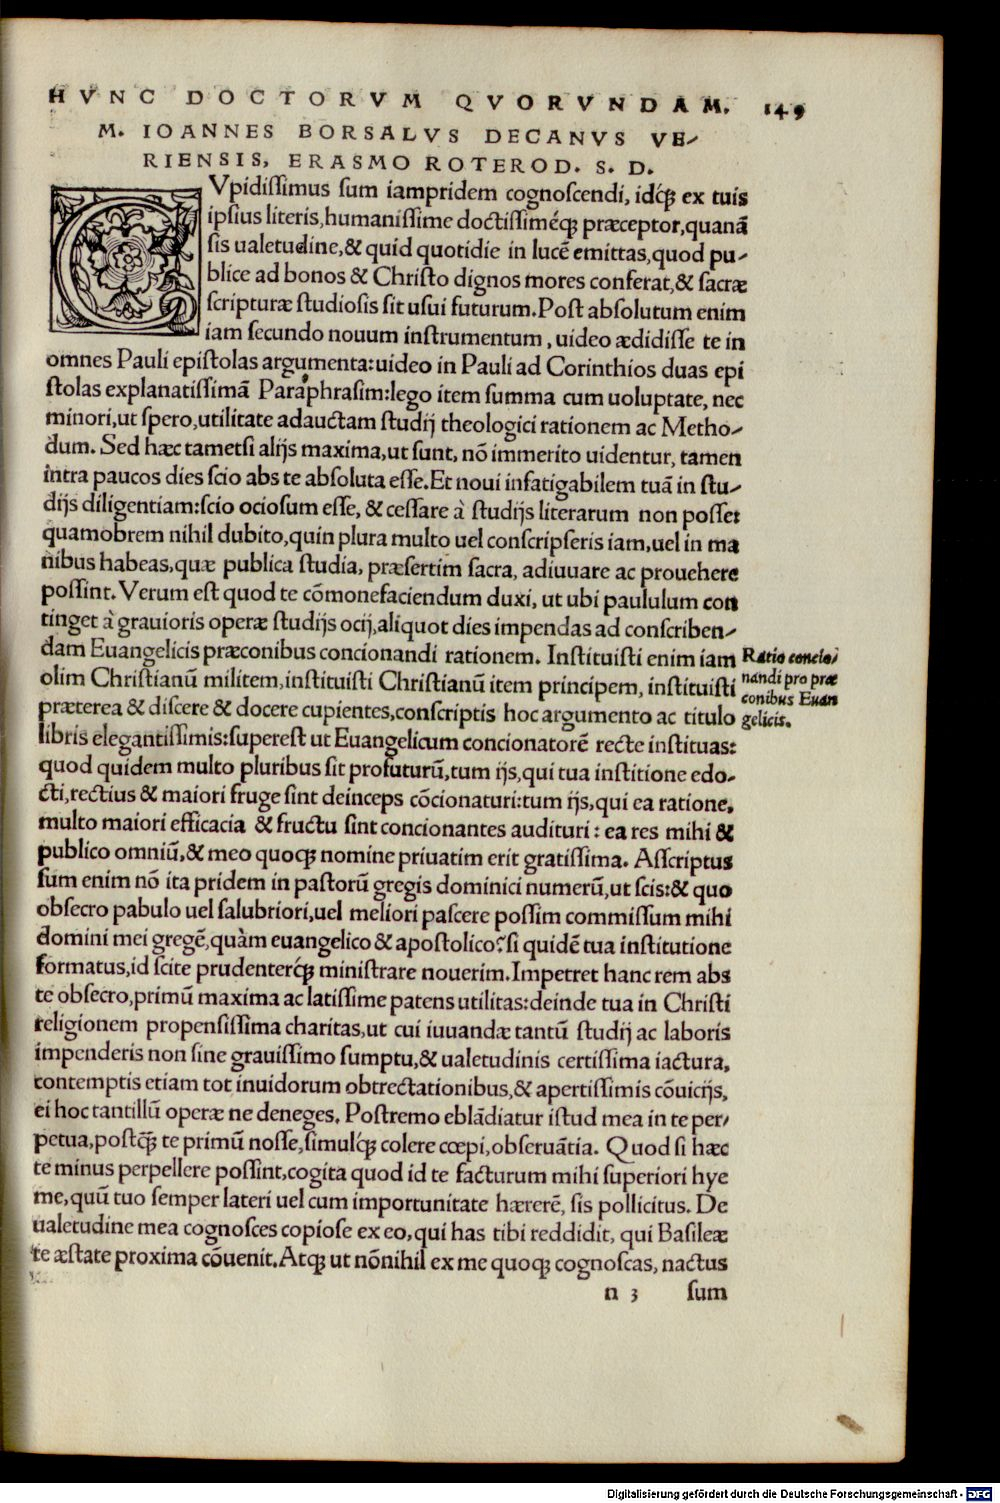 HVNC DOCTORVM QVORVNDAM. 149
M. IOANNES BORSALVS DECANVS VE-
RIENSIS, ERASMO ROTEROD. S. D.
CVpidissimus sum iampridem cognoscendi, idq́ꝫ ex tuis
ipsius literis, humanissime doctissiméq́ꝫ præceptor, quanã
sis ualetudine, & quid quotidie in lucẽ emittas, quod pu-
blice ad bonos & Christo dignos mores conferat, & sacræ
scripturæ studiosis sit usui futurum. Post absolutum enim
iam secundo nouum instrumentum, uideo ædidisse te in
omnes Pauli epistolas argumenta: uideo in Pauli ad Corinthios duas epi
stolas explanatissimã Paraphrasim: lego item summa cum uoluptate, nec
minori, ut spero, utilitate adauctam studij theologici rationem ac Metho-
dum. Sed hæc tametsi alijs maxima, ut sunt, nõ immerito uidentur, tamen
intra paucos dies scio abs te absoluta esse. Et noui infatigabilem tuã in stu-
dijs diligentiam: scio ociosum esse, & cessare à studijs literarum non posse:
quamobrem nihil dubito, quin plura multo uel conscripseris iam, uel in ma
nibus habeas, quæ publica studia, præsertim sacra, adiuuare ac prouehere
possint. Verum est quod te cõmonefaciendum duxi, ut ubi paululum con
tinget à grauioris operæ studijs ocij, aliquot dies impendas ad conscriben-
dam Euangelicis præconibus concionandi rationem. Instituisti enim iam
olim Christianũ militem, instituisti Christianũ item principem, instituisti
præterea & discere & docere cupientes, conscriptis hoc argumento ac titulo
libris elegantissimis: superest ut Euangelicum concionatorẽ recte instituas:
quod quidem multo pluribus sit profuturũ, tum ijs, qui tua institione edo-
cti, rectius & maiori fruge sint deinceps cõcionaturi: tum ijs, qui ea ratione,
multo maiori efficacia & fructu sint concionantes audituri: ea res mihi &
publico omniũ, & meo quoqꝫ nomine priuatim erit gratissima. Asscriptus
sum enim nõ ita pridem in pastorũ gregis dominici numerũ, ut scis: & quo
obsecro pabulo uel salubriori, uel meliori pascere possim commissum mihi
domini mei gregẽ, quàm euangelico & apostolico? si quidẽ tua institutione
formatus, id scite prudenterq́ꝫ ministrare nouerim. Impetret hanc rem abs
te obsecro, primũ maxima ac latissime patens utilitas: deinde tua in Christi
religionem propensissima charitas, ut cui iuuandæ tantũ studij ac laboris
impenderis non sine grauissimo sumptu, & ualetudinis certissima iactura,
contemptis etiam tot inuidorum obtrectationibus, & apertissimis cõuicijs,
ei hoc tantillũ operæ ne deneges. Postremo eblãdiatur istud mea in te per-
petua, postq̃ꝫ te primũ nosse, simulq́ꝫ colere cœpi, obseruãtia. Quod si hæc
te minus perpellere possint, cogita quod id te facturum mihi superiori hye
me, quũ tuo semper lateri uel cum importunitate hærerẽ, sis pollicitus. De
ualetudine mea cognosces copiose ex eo, qui has tibi reddidit, qui Basileæ
te æstate proxima cõuenit. Atqꝫ ut nõnihil ex me quoqꝫ cognoscas, nactus
n 3 sum
Ratio concio-
nandi pro præ
conibus Euan
gelicis.
Digitalisierung gefördert durch die Deutsche Forschungsgemeinschaft - DFG